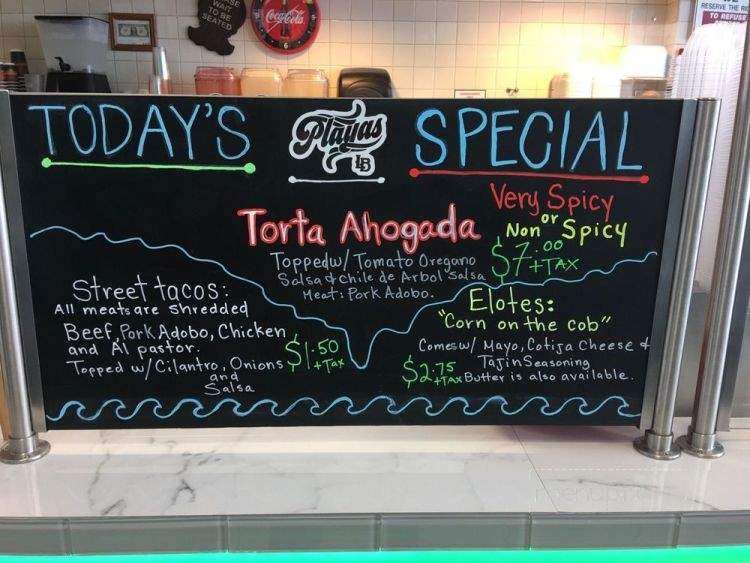 WAIT
TO BE
SEATED
Coca-Cola
RESERVE THE RI
TO REFUSE
TODAY'S
Playas
LB
SPECIAL
Torta Ahogada
Very Spicy
or
Non Spicy
Toppedw/ Tomato Oregano
Salsa & chile de Arbol Salsa
Meat: Pork Adobo.
$7.00
+TAX
Street tacos:
All meats are shredded
Beef, Pork Adobo, Chicken
and Al pastor.
Topped w/Cilantro, Onions
and
Salsa
$1.50
+TAX
Elotes:
"Corn on the cob"
Comes w/ Mayo, Cotija Cheese &
Tajin Seasoning
Butter is also available.
$2.75
+TAX